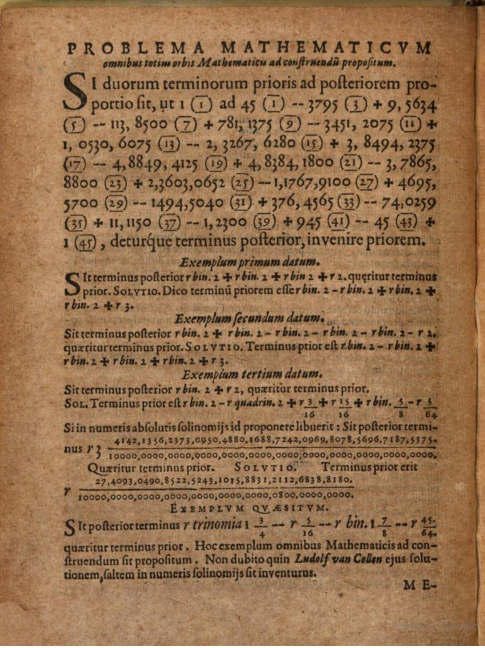 PROBLEMA MATHEMATICVM
omnibus totius orbis Mathematicis ad construendū propositum.
SI duorum terminorum prioris ad posteriorem pro-
portio sit, ut 1 (1) ad 45 (1) -- 3795 (3) + 9, 5634
(5) -- 113, 8500 (7) + 781, 1375 (9) -- 3451, 2075 (11) +
1, 0530, 6075 (13) -- 2, 3267, 6280 (15) + 3, 8494, 2375
(17) -- 4,8849, 4125 (19) + 4, 8384, 1800 (21) -- 3, 7865,
8800 (23) + 2,3603,0652 (25) -- 1,1767,9100 (27) + 4695,
5700 (29) -- 1494,5040 (31) + 376, 4565 (33) -- 74,0259
(35) + 11, 1150 (37) -- 1, 2300 (39) + 945 (41) -- 45 (43) +
1 (45), deturque terminus posterior, invenire priorem.
Exemplum primum datum.
SIt terminus posterior r bin. 2 + r bin. 2 + r bin 2 + r 2. queritur terminus
prior. SOLVTIO. Dico terminū priorem esse r bin. 2 - r bin. 2 + r bin. 2 +
r bin. 2 + r 3.
Exemplum secundum datum.
Sit terminus posterior r bin. 2 + r bin. 2 - r bin. 2 - r bin. 2 - r bin. 2 - r 2,
quæritur terminus prior. SOLVTIO. Terminus prior est r bin. 2 - r bin. 2 +
r bin. 2 + r bin. 2 + r bin. 2 + r 3.
Exemplum tertium datum.
Sit terminus posterior r bin. 2 + r 2, quæritur terminus prior.
SOL. Terminus prior est r bin. 2 - r quadrin. 2 + r 3/16 + r 15/16 + r bin. 5/8 - r 5/64
Si in numeris absolutis solinomijs id proponere libuerit: Sit posterior termi-
nus r 3 4142,1356,2373,0950,4880,1688,7242,0969,8078,5696,7187,5375.
10000,0000,0000,0000,0000,0000,0000,0000,0000,0000,0000,0000.
Quæritur terminus prior. SOLVTIO. Terminus prior erit
r 27,4093,0490,8522,5243,1015,8831,2112,6838,8180.
10000,0000,0000,0000,0000,0000,0000,0800,0000,0000.
EXEMPLVM QVÆSITVM.
SIt posterior terminus r trinomia 1 3/4 -- r 5/16 -- r bin. 1 7/8 -- r 45/64.
quæritur terminus prior. Hoc exemplum omnibus Mathematicis ad con-
struendum sit propositum. Non dubito quin Ludolf van Collen ejus solu-
tionem, saltem in numeris solinomijs sit inventurus.
M E-